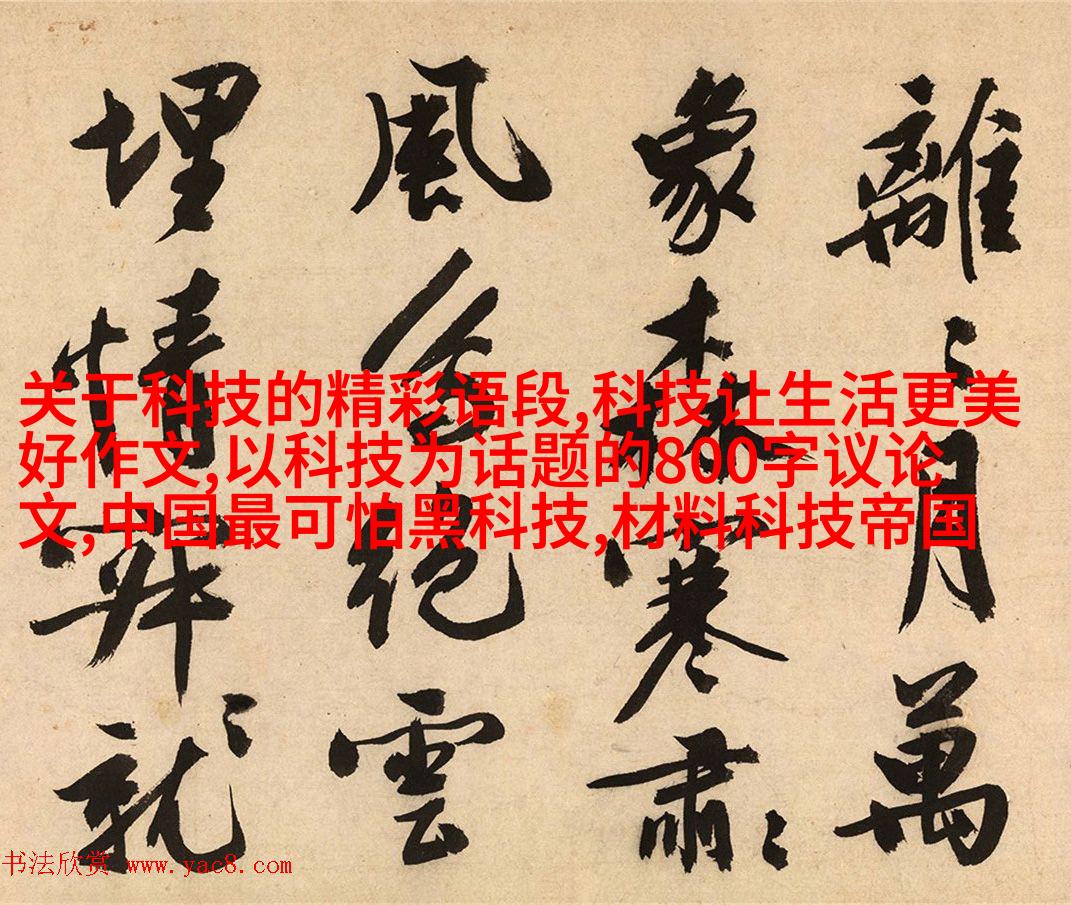 離〻月萬
象森寒肅〻
風絕雲
埋情就〻
关于科技的精彩语段,科技让生活更美
好作文,以科技为话题的800字议论
文,中国最可怕黑科技,材料科技帝国
书法欣赏 www.yac8.com